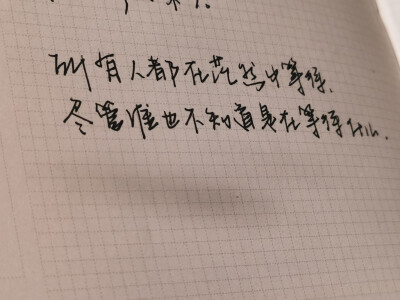 所有人都在茫然中等待,
尽管谁也不知道是在等待什么.